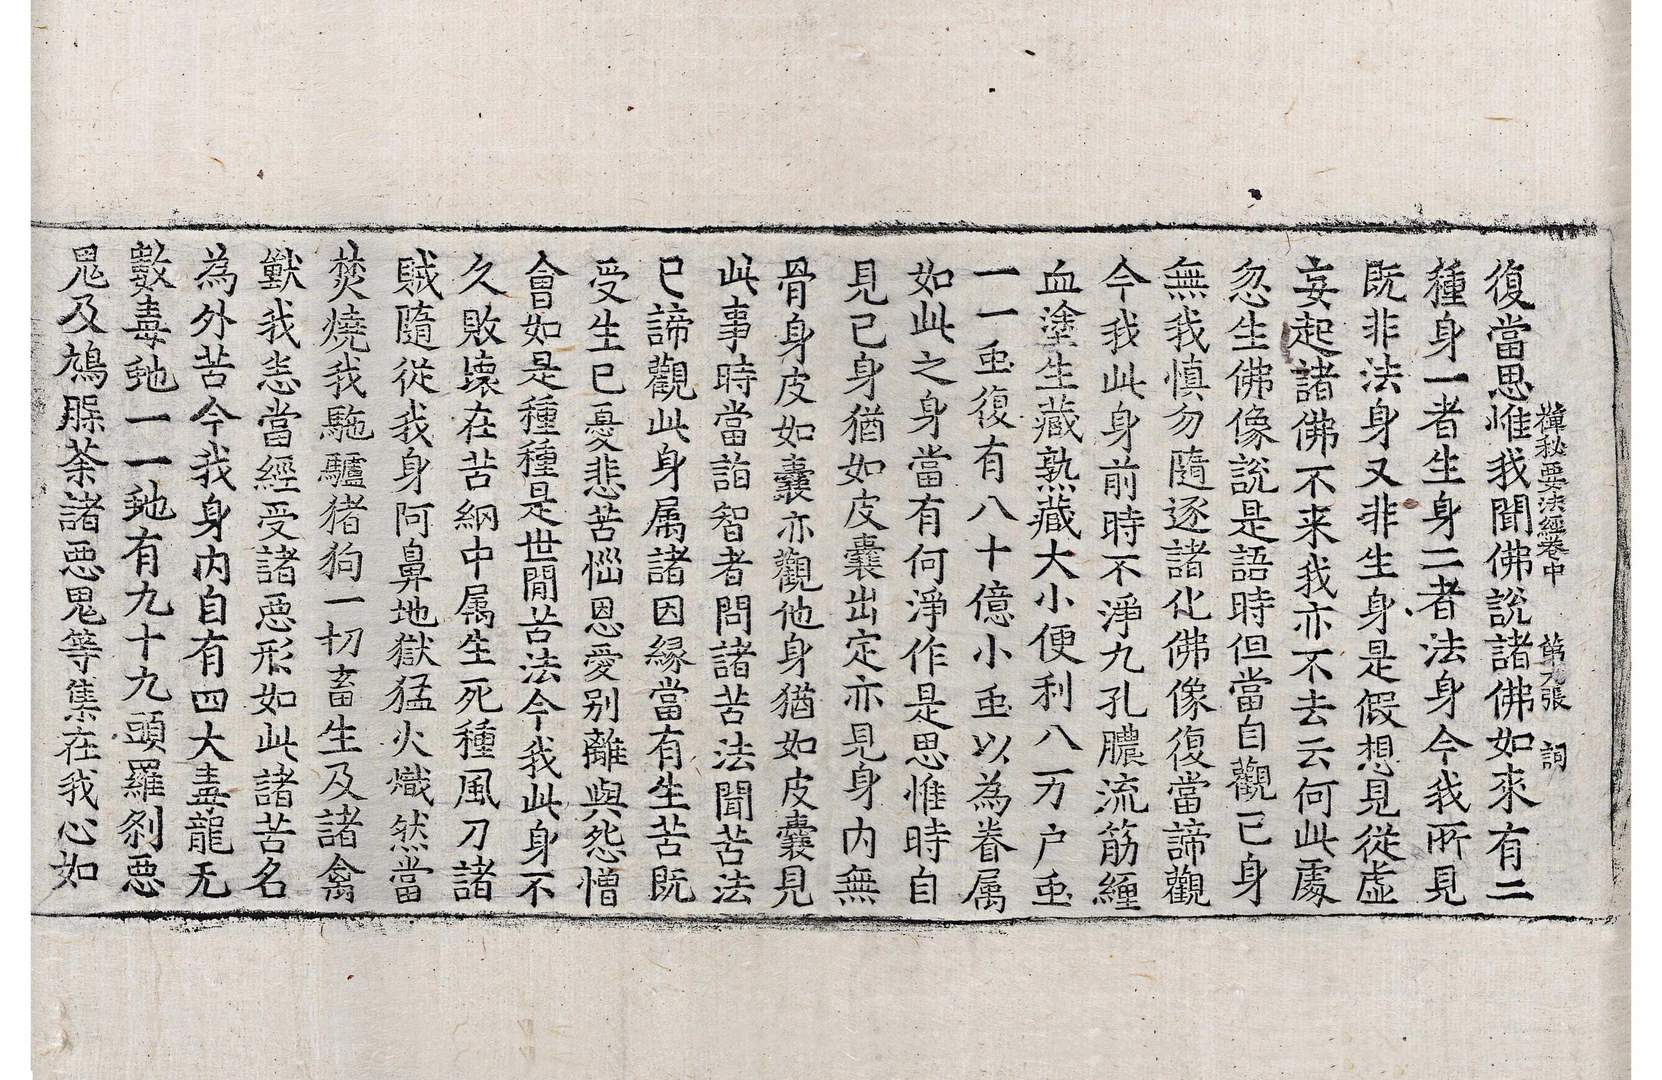 禪秘要法經卷中 第九張 詞
復當思惟我聞佛說諸佛如來有二
種身一者生身二者法身今我所見
既非法身又非生身是假想見從虛
妄起諸佛不来我亦不去云何此處
忽生佛像說是語時但當自觀已身
無我慎勿隨逐諸化佛像復當諦觀
今我此身前時不淨九孔膿流筋纏
血塗生藏熟藏大小便利八万户䖝
一一䖝復有八十億小䖝以為眷属
如此之身當有何淨作是思惟時自
見已身猶如皮囊出定亦見身内無
骨身皮如囊亦觀他身猶如皮囊見
此事時當詣智者問諸苦法聞苦法
已諦觀此身属諸因縁當有生苦既
受生已憂悲苦惱恩愛别離與怨憎
會如是種種是世間苦法今我此身不
久敗壞在苦網中属生死種風刀諸
賊隨從我身阿鼻地獄猛火熾然當
焚燒我駞驢猪狗一切畜生及諸禽
獸我悉當經受諸惡形如此諸苦名
為外苦今我身内自有四大毒龍无
數毒虵一一虵有九十九頭羅刹惡
鬼及鳩槃荼諸惡鬼等集在我心如